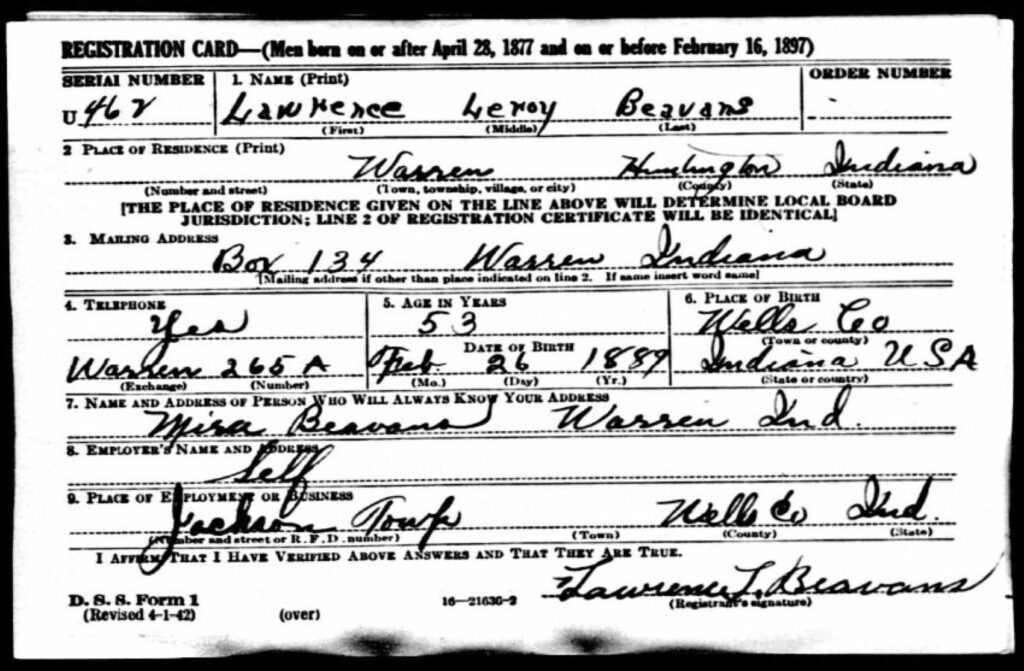 REGISTRATION CARD—(Men born on or after April 28, 1877 and on or before February 16, 1897)
SERIAL NUMBER 1. NAME (Print) ORDER NUMBER
U 462 Lawrence Leroy Beavans
(First) (Middle) (Last)
2 PLACE OF RESIDENCE (Print)
Warren Huntington Indiana
(Number and street) (Town, township, village, or city) (County) (State)
[THE PLACE OF RESIDENCE GIVEN ON THE LINE ABOVE WILL DETERMINE LOCAL BOARD
JURISDICTION; LINE 2 OF REGISTRATION CERTIFICATE WILL BE IDENTICAL]
3. MAILING ADDRESS
Box 134 Warren Indiana
[Mailing address if other than place indicated on line 2. If same insert word same]
4. TELEPHONE 5. AGE IN YEARS 6. PLACE OF BIRTH
Yes 53 Wells Co
DATE OF BIRTH (Town or county)
Warren 265 A Feb. 26 1889 Indiana USA
(Exchange) (Number) (Mo.) (Day) (Yr.) (State or country)
7. NAME AND ADDRESS OF PERSON WHO WILL ALWAYS KNOW YOUR ADDRESS
Beavans Warren Ind.
8. EMPLOYER'S NAME AND ADDRESS
Self
9. PLACE OF EMPLOYMENT OR BUSINESS
Jackson Towp Wells Co Ind.
(Number and street or R. F. D. number) (Town) (County) (State)
I AFFIRM THAT I HAVE VERIFIED ABOVE ANSWERS AND THAT THEY ARE TRUE.
Lawrence L. Beavans
D. S. S. Form 1 16—21630-2 (Registrant's signature)
(Revised 4-1-42) (over)